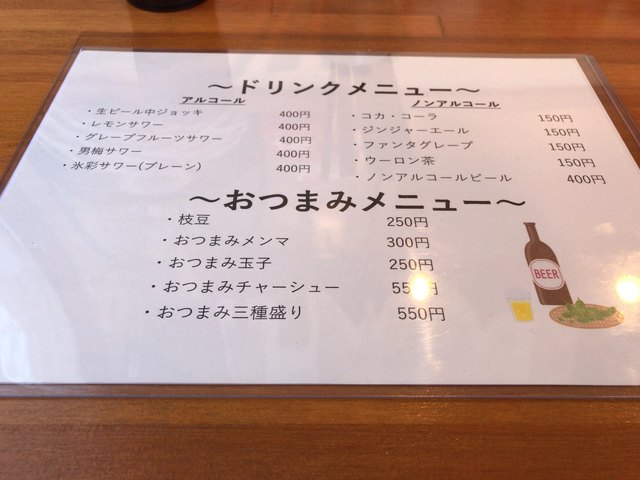 ～ドリンクメニュー～
アルコール
・生ビール中ジョッキ 400円
・レモンサワー 400円
・グレープフルーツサワー 400円
・男梅サワー 400円
・氷彩サワー(プレーン) 400円
ノンアルコール
・コカ・コーラ 150円
・ジンジャーエール 150円
・ファンタグレープ 150円
・ウーロン茶 150円
・ノンアルコールビール 400円
～おつまみメニュー～
・枝豆 250円
・おつまみメンマ 300円
・おつまみ玉子 250円
・おつまみチャーシュー
・おつまみ三種盛り 550円
BEER